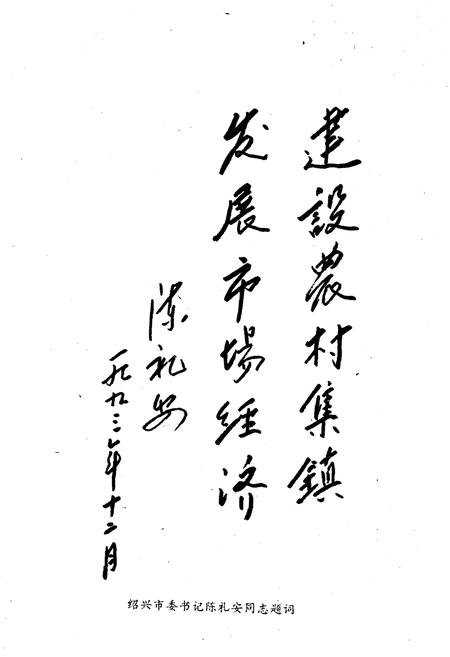 建設農村集鎮
发展市場經济
陈礼安
一九九三年十二月
绍兴市委书记陈礼安同志题词